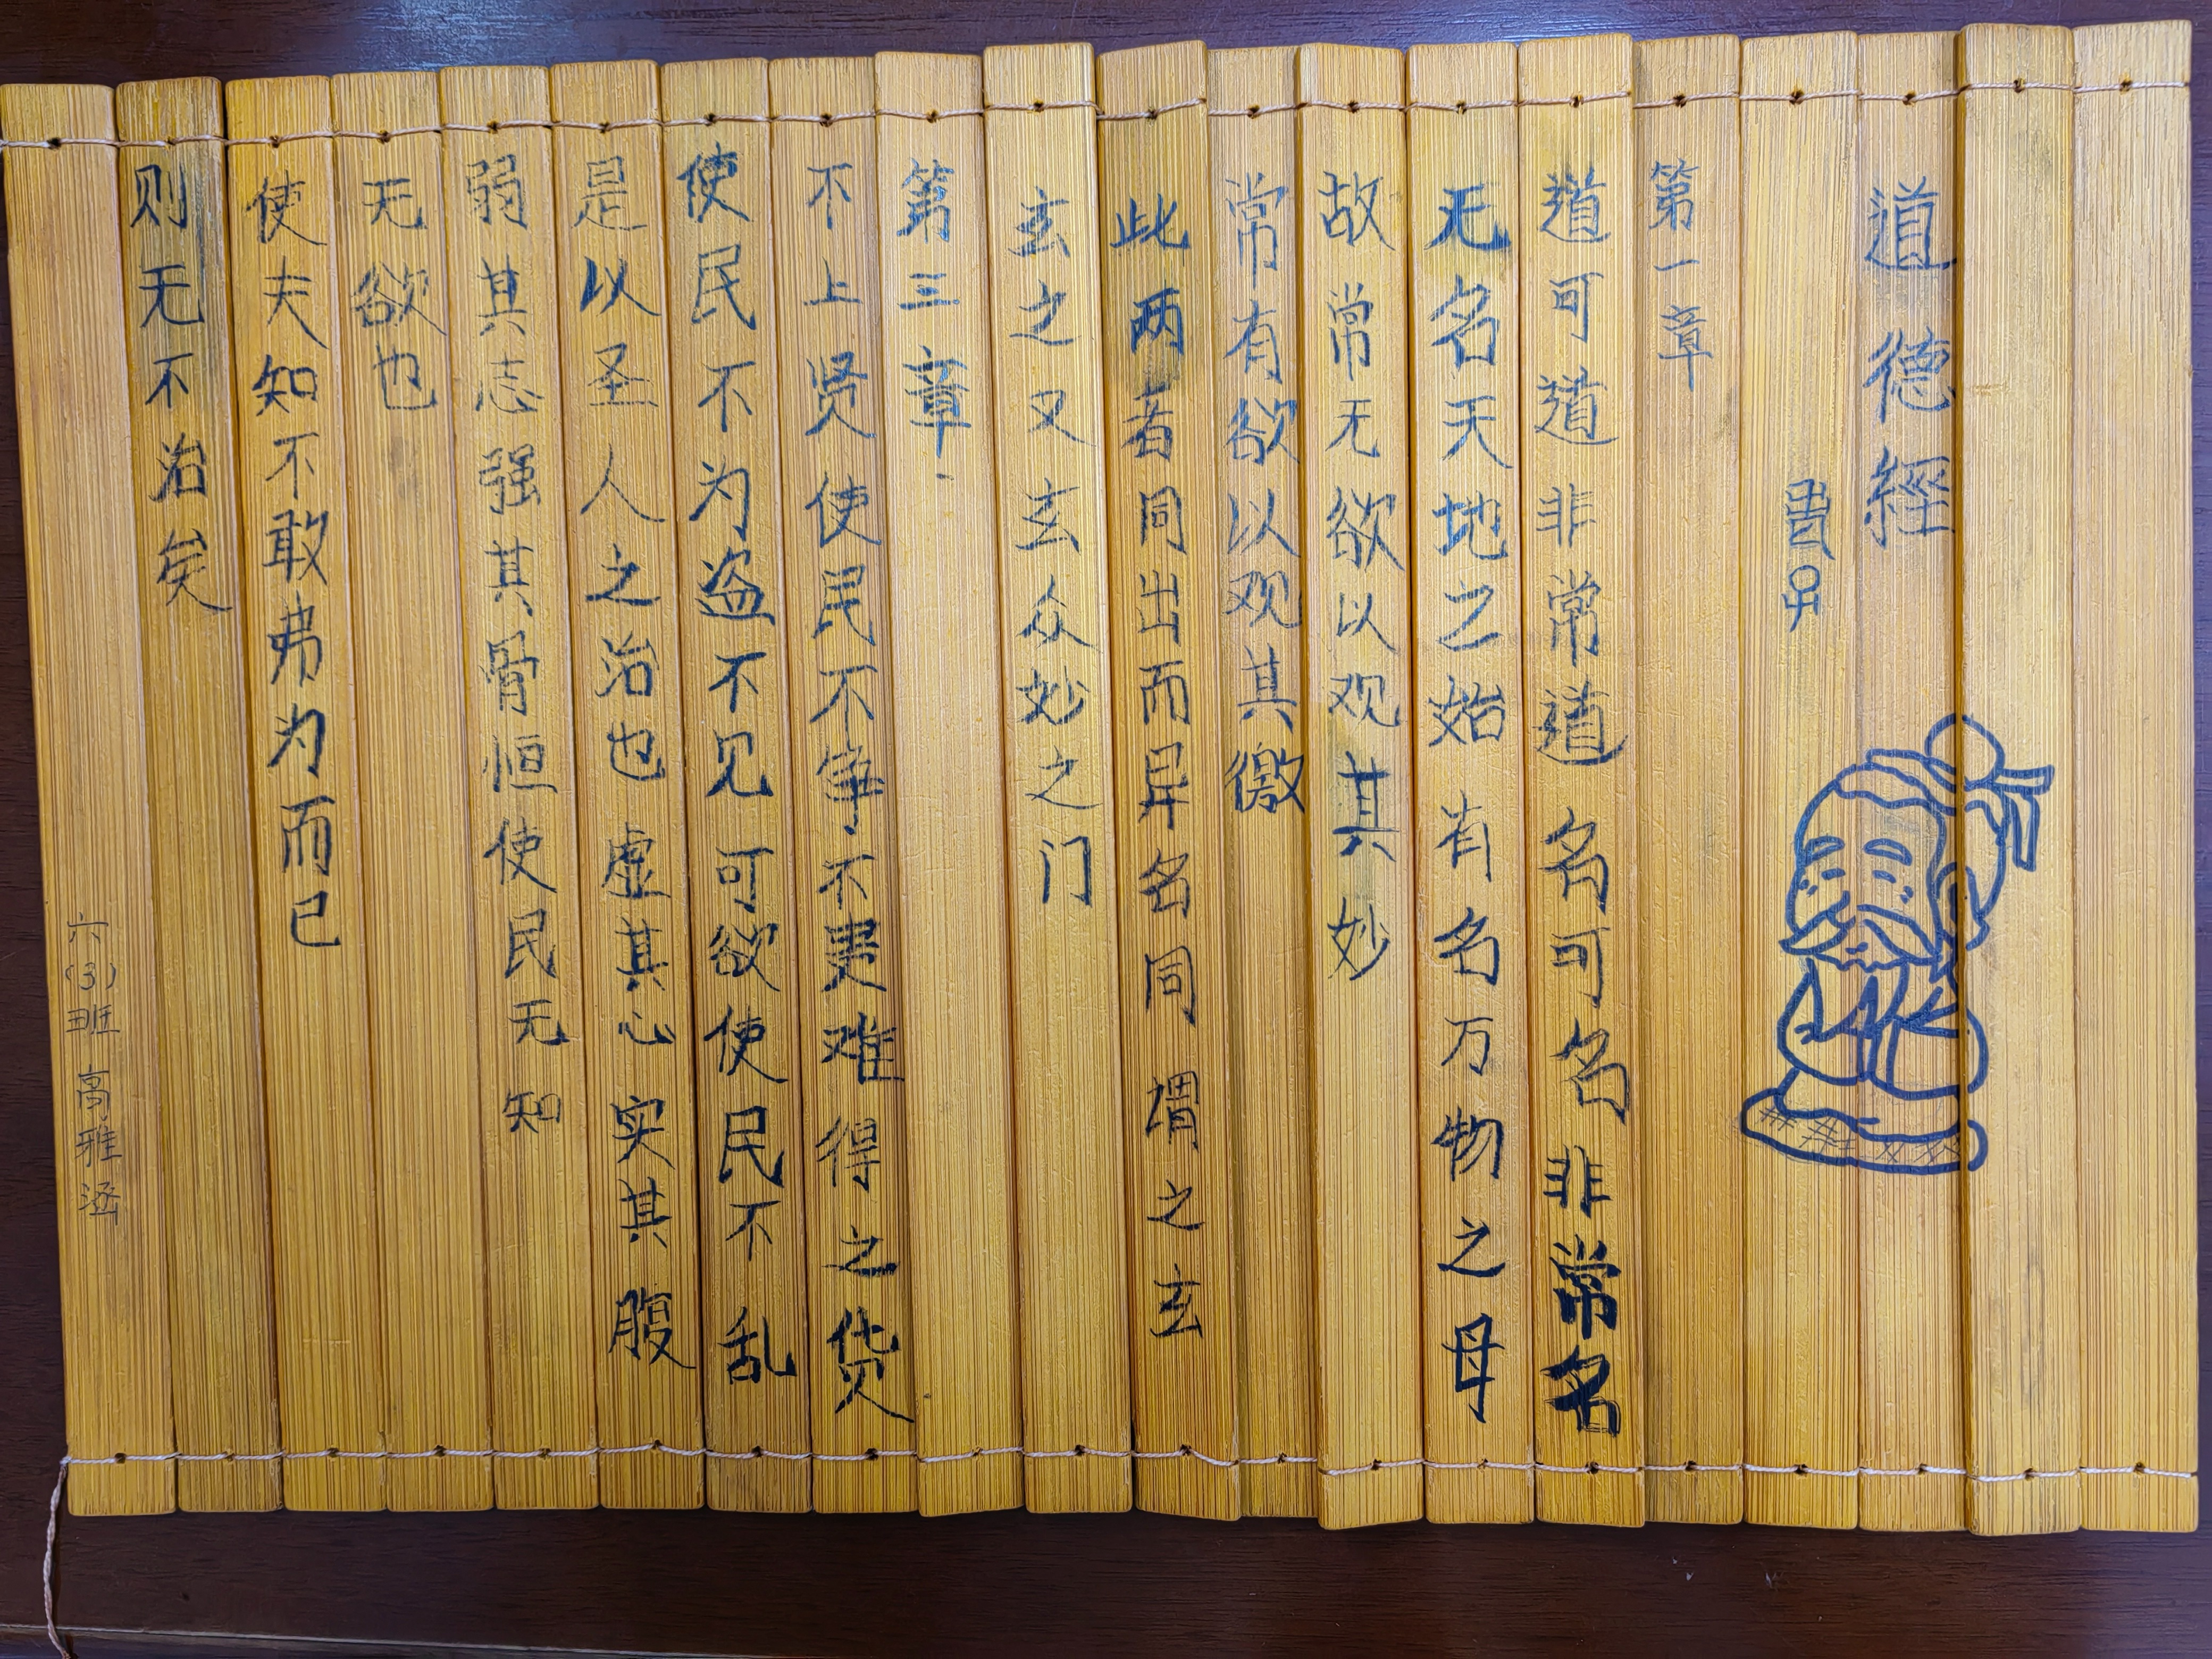 道德經
第一章
道可道非常道名可名非常名
无名天地之始有名万物之母
故常无欲以观其妙
常有欲以观其徼
此两者同出而异名同谓之玄
玄之又玄众妙之门
第三章
不上贤使民不争不贵难得之货
使民不为盗不见可欲使民不乱
是以圣人之治也虚其心实其腹
弱其志强其骨恒使民无知
无欲也
使夫知不敢弗为而已
则无不治矣
六(3)班 高雅涵